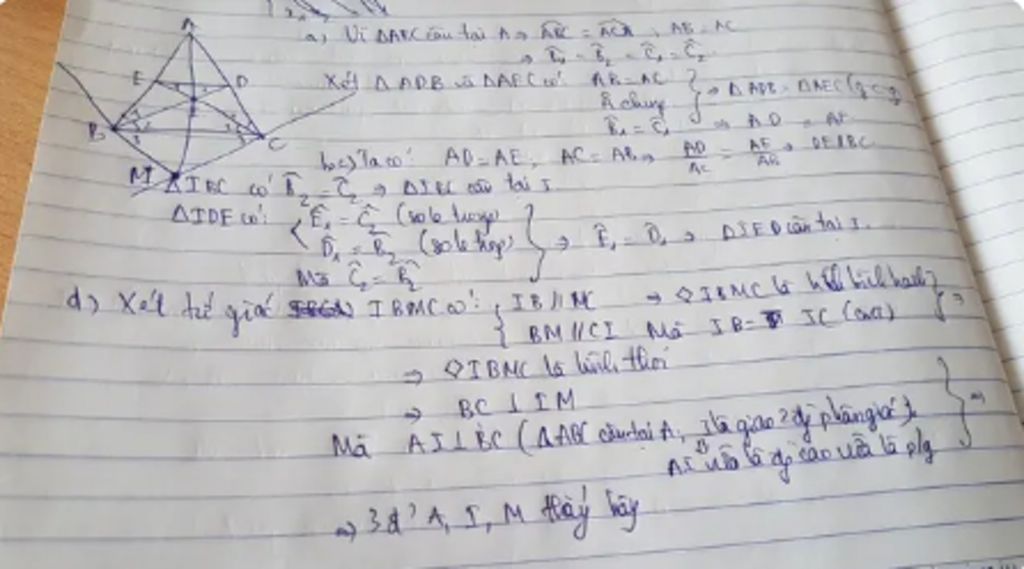 A
E
D
B
C
M
a) Vì ΔABC cân tại A ⇒ ABC = ACB, AB = AC
⇒ B̂₁ = B̂₂ = Ĉ₁ = Ĉ₂
Xét Δ ADB và ΔAEC có: AB = AC
 chung
B̂₁ = Ĉ₁
} ⇒ Δ ADB = ΔAEC (g.c.g)
⇒ AD = AE
b, c) Ta có: AD = AE, AC = AB ⇒ AD/AC = AE/AB ⇒ DE//BC
ΔIBC có B̂₂ = Ĉ₂ ⇒ ΔIBC cân tại I
ΔIDE có: { Ê₁ = Ĉ₂ (so le trong)
D̂₁ = B̂₂ (so le trong) } ⇒ Ê₁ = D̂₁ ⇒ ΔIED cân tại I.
Mà Ĉ₂ = B̂₂
d) Xét tứ giác IBMC có: { IB // MC ⇒ ◇IBMC là hình bình hành } ⇒
BM // CI Mà IB = IC (cmt)
⇒ ◇IBMC là hình thoi
⇒ BC ⊥ IM
Mà AI ⊥ BC (ΔABC cân tại A, I là giao 2 đg phân giác) } ⇒
AI vừa là đg cao vừa là p/g
⇒ 3 đ' A, I, M thẳng hàng